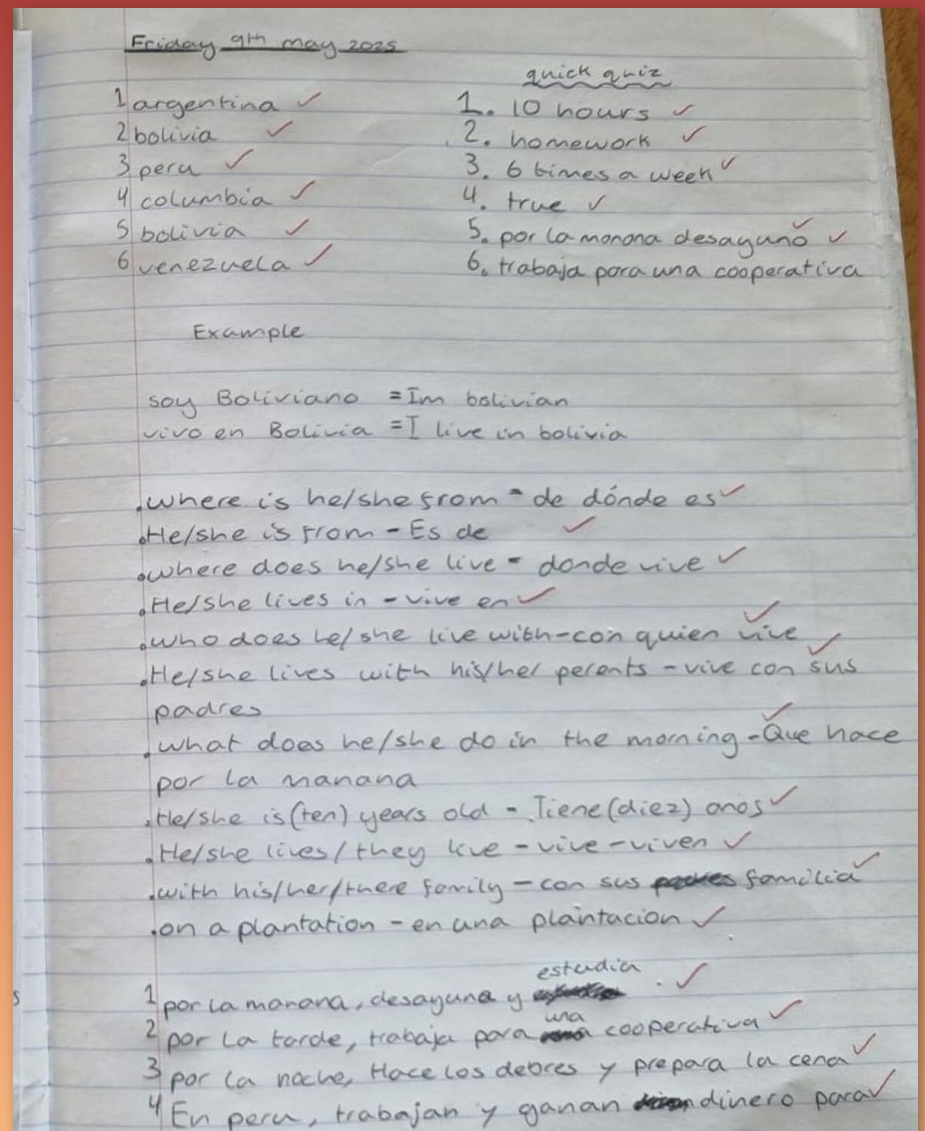 Friday 9th may 2025
1 argentina ✓
2 bolivia ✓
3 peru ✓
4 columbia ✓
5 bolivia ✓
6 venezuela ✓
quick quiz
1. 10 hours ✓
2. homework ✓
3. 6 times a week ✓
4. true ✓
5. por la manana desayuno ✓
6. trabaja para una cooperativa
Example
soy Boliviano = Im bolivian
vivo en Bolivia = I live in bolivia
.where is he/she from - de dónde es ✓
.He/she is from - Es de ✓
.where does he/she live - donde vive ✓
.He/she lives in - vive en ✓
.who does he/she live with - con quien vive ✓
.He/she lives with his/her perents - vive con sus ✓
padres
.what does he/she do in the morning - Que hace ✓
por la manana
.He/she is (ten) years old - Tiene (diez) anos ✓
.He/she lives / they live - vive - viven ✓
.with his/her/there family - con sus familia ✓
.on a plantation - en una plantacion ✓
1 por la manana, desayuna y estudia. ✓
2 por la tarde, trabaja para una cooperativa ✓
3 por la noche, Hace los debres y prepara la cena ✓
4 En peru, trabajan y ganan dinero para ✓